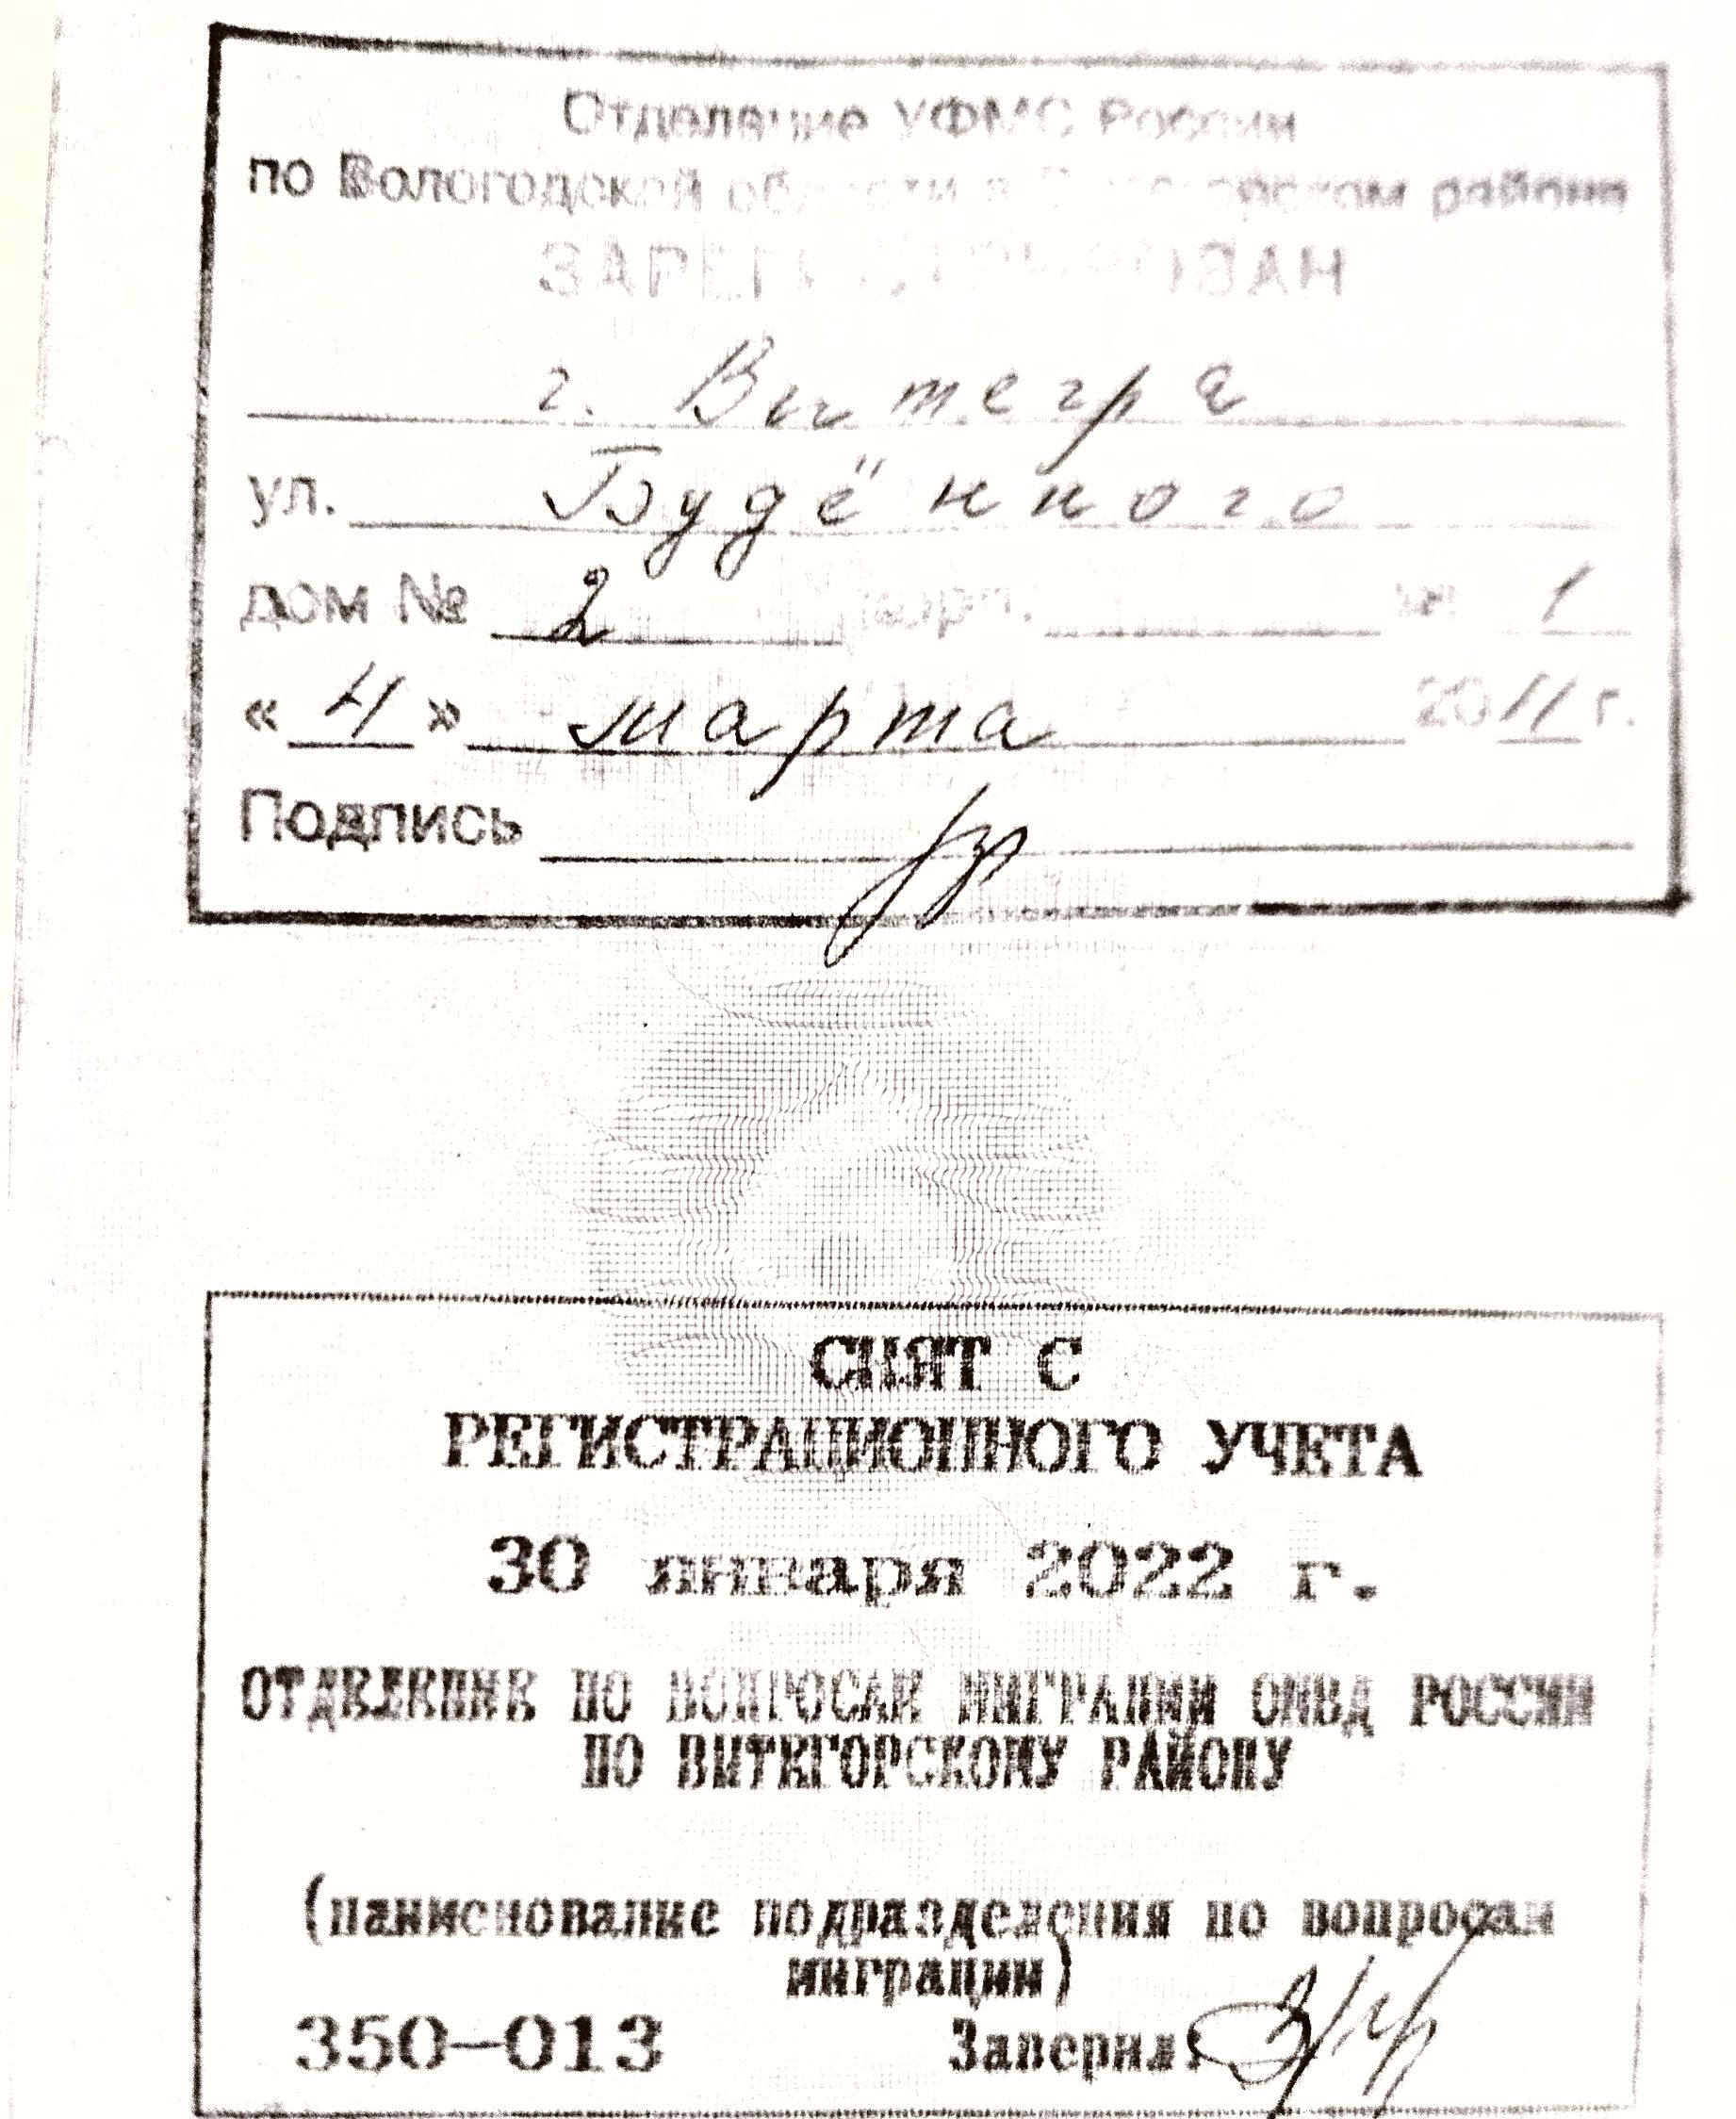 Отделение УФМС России
по Вологодской области в Вытегорском районе
ЗАРЕГИСТРИРОВАН
г. Вытегра
ул. Будённого
дом № 2 корп. кв. 1
« 4 » марта 2011 г.
Подпись
СНЯТ С
РЕГИСТРАЦИОННОГО УЧЕТА
30 января 2022 г.
ОТДЕЛЕНИЕ ПО ВОПРОСАМ МИГРАЦИИ ОМВД РОССИИ
ПО ВЫТЕГОРСКОМУ РАЙОНУ
(наименование подразделения по вопросам
миграции)
350-013 Заверил: